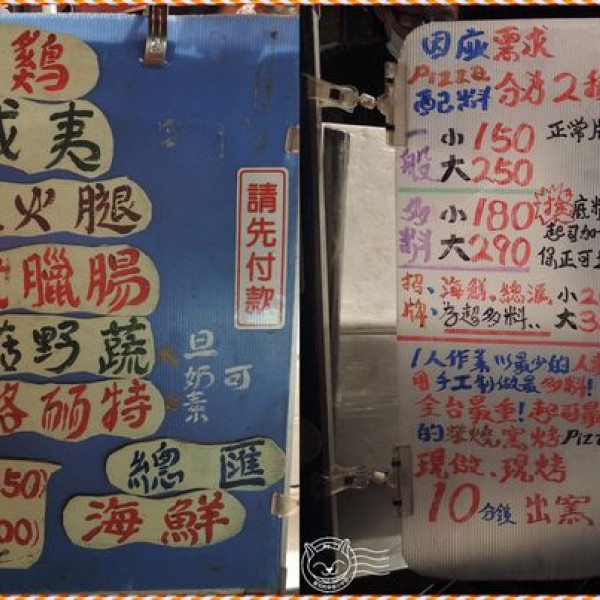 鷄
夷
火腿
臘腸
野蔬
特
總匯
海鮮
50)
00)
請先付款
可
旦奶素
因应需求
Pizza
配料
分為2種
一般
小150
大250
正常
多料
小180
大290
底料
起司加
保正可
招牌、海鮮、總滙
為超多料..
小2
大3
1人作業以最少的人
用手工制做最多料!
全台最重!起司最
的柴燒窯烤Pizz
現做、現烤
10分鐘出窯